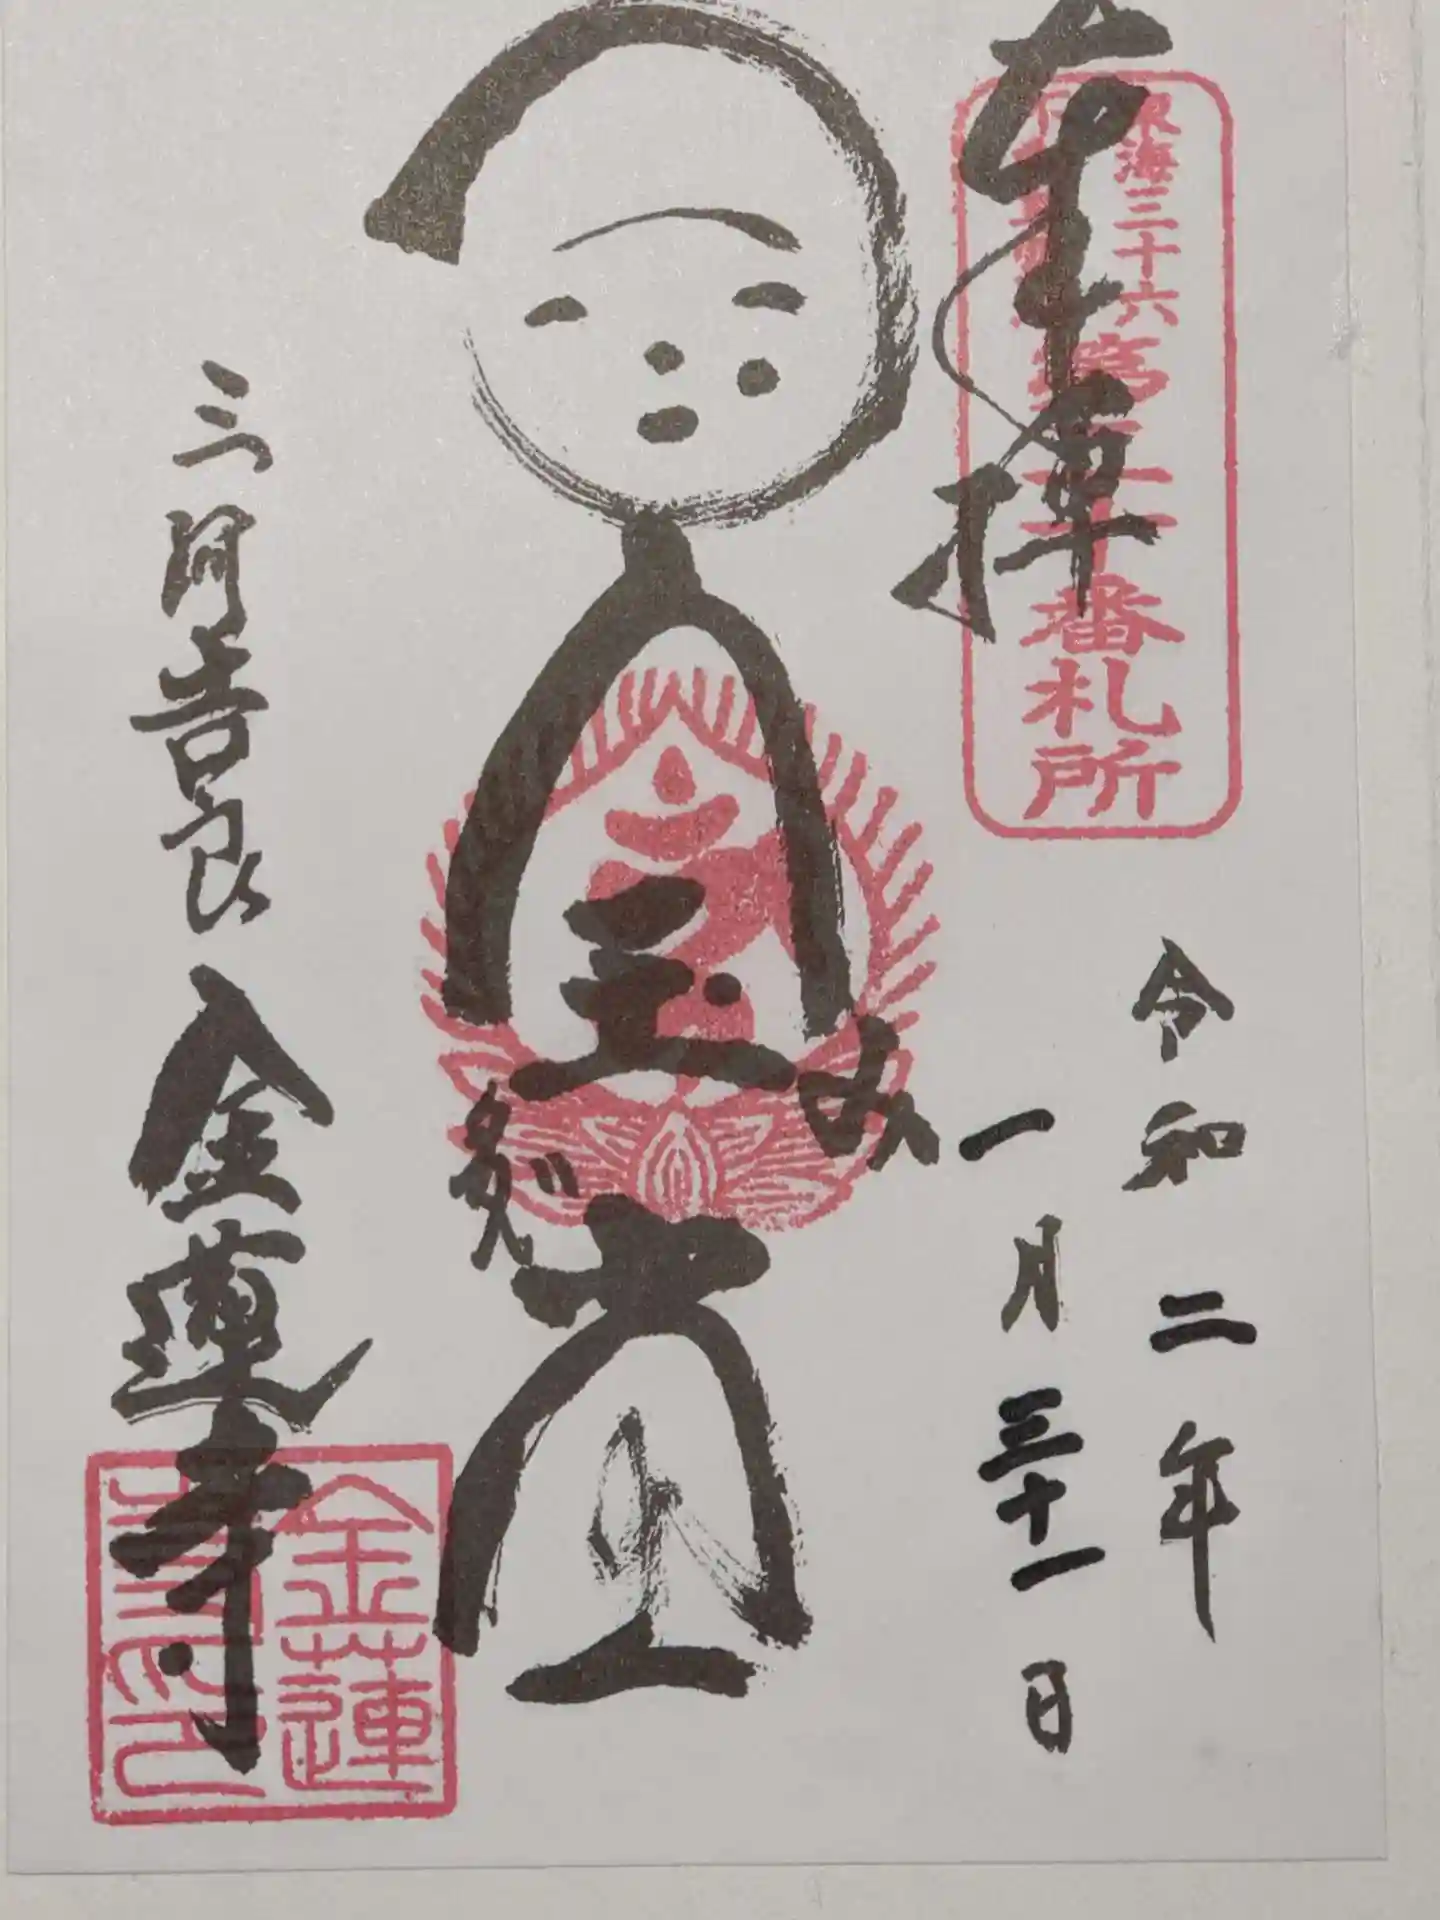 奉拝
東海三十六
第二十番札所
令和二年
一月三十一日
宝
み
多゛
堂
三河吉良 金蓮寺
金蓮
寺印